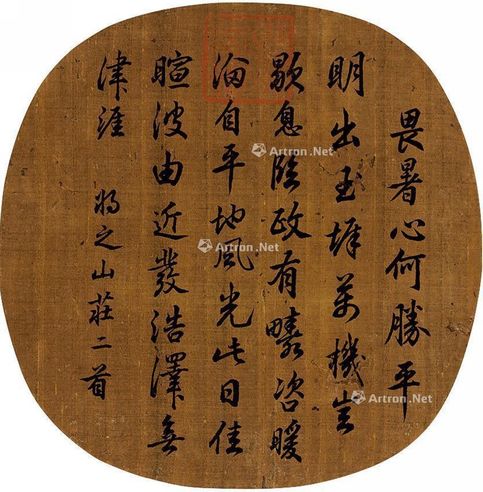 畏暑心何勝平
明出玉墀萬機豈
歇息政有疇咨暖
淪自平地風光此日佳
暄波由近發浩澤無
津涯 將之山莊二首
Artron.Net
Artron.Net
Artron.Net